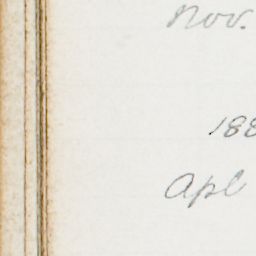 Nov.
188
Apl